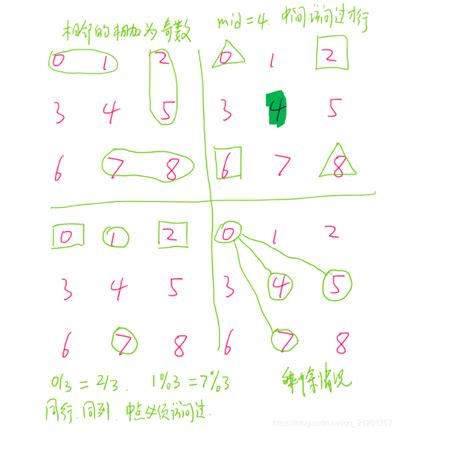 相邻的相加为奇数
0 1 2
3 4 5
6 7 8
mid=4 中间访问过才行
0 1 2
3 4 5
6 7 8
0 1 2
3 4 5
6 7 8
0/3 = 2/3. 1%3=7%3
同行、同列、中点必须访问过.
0 1 2
3 4 5
6 7 8
剩余情况